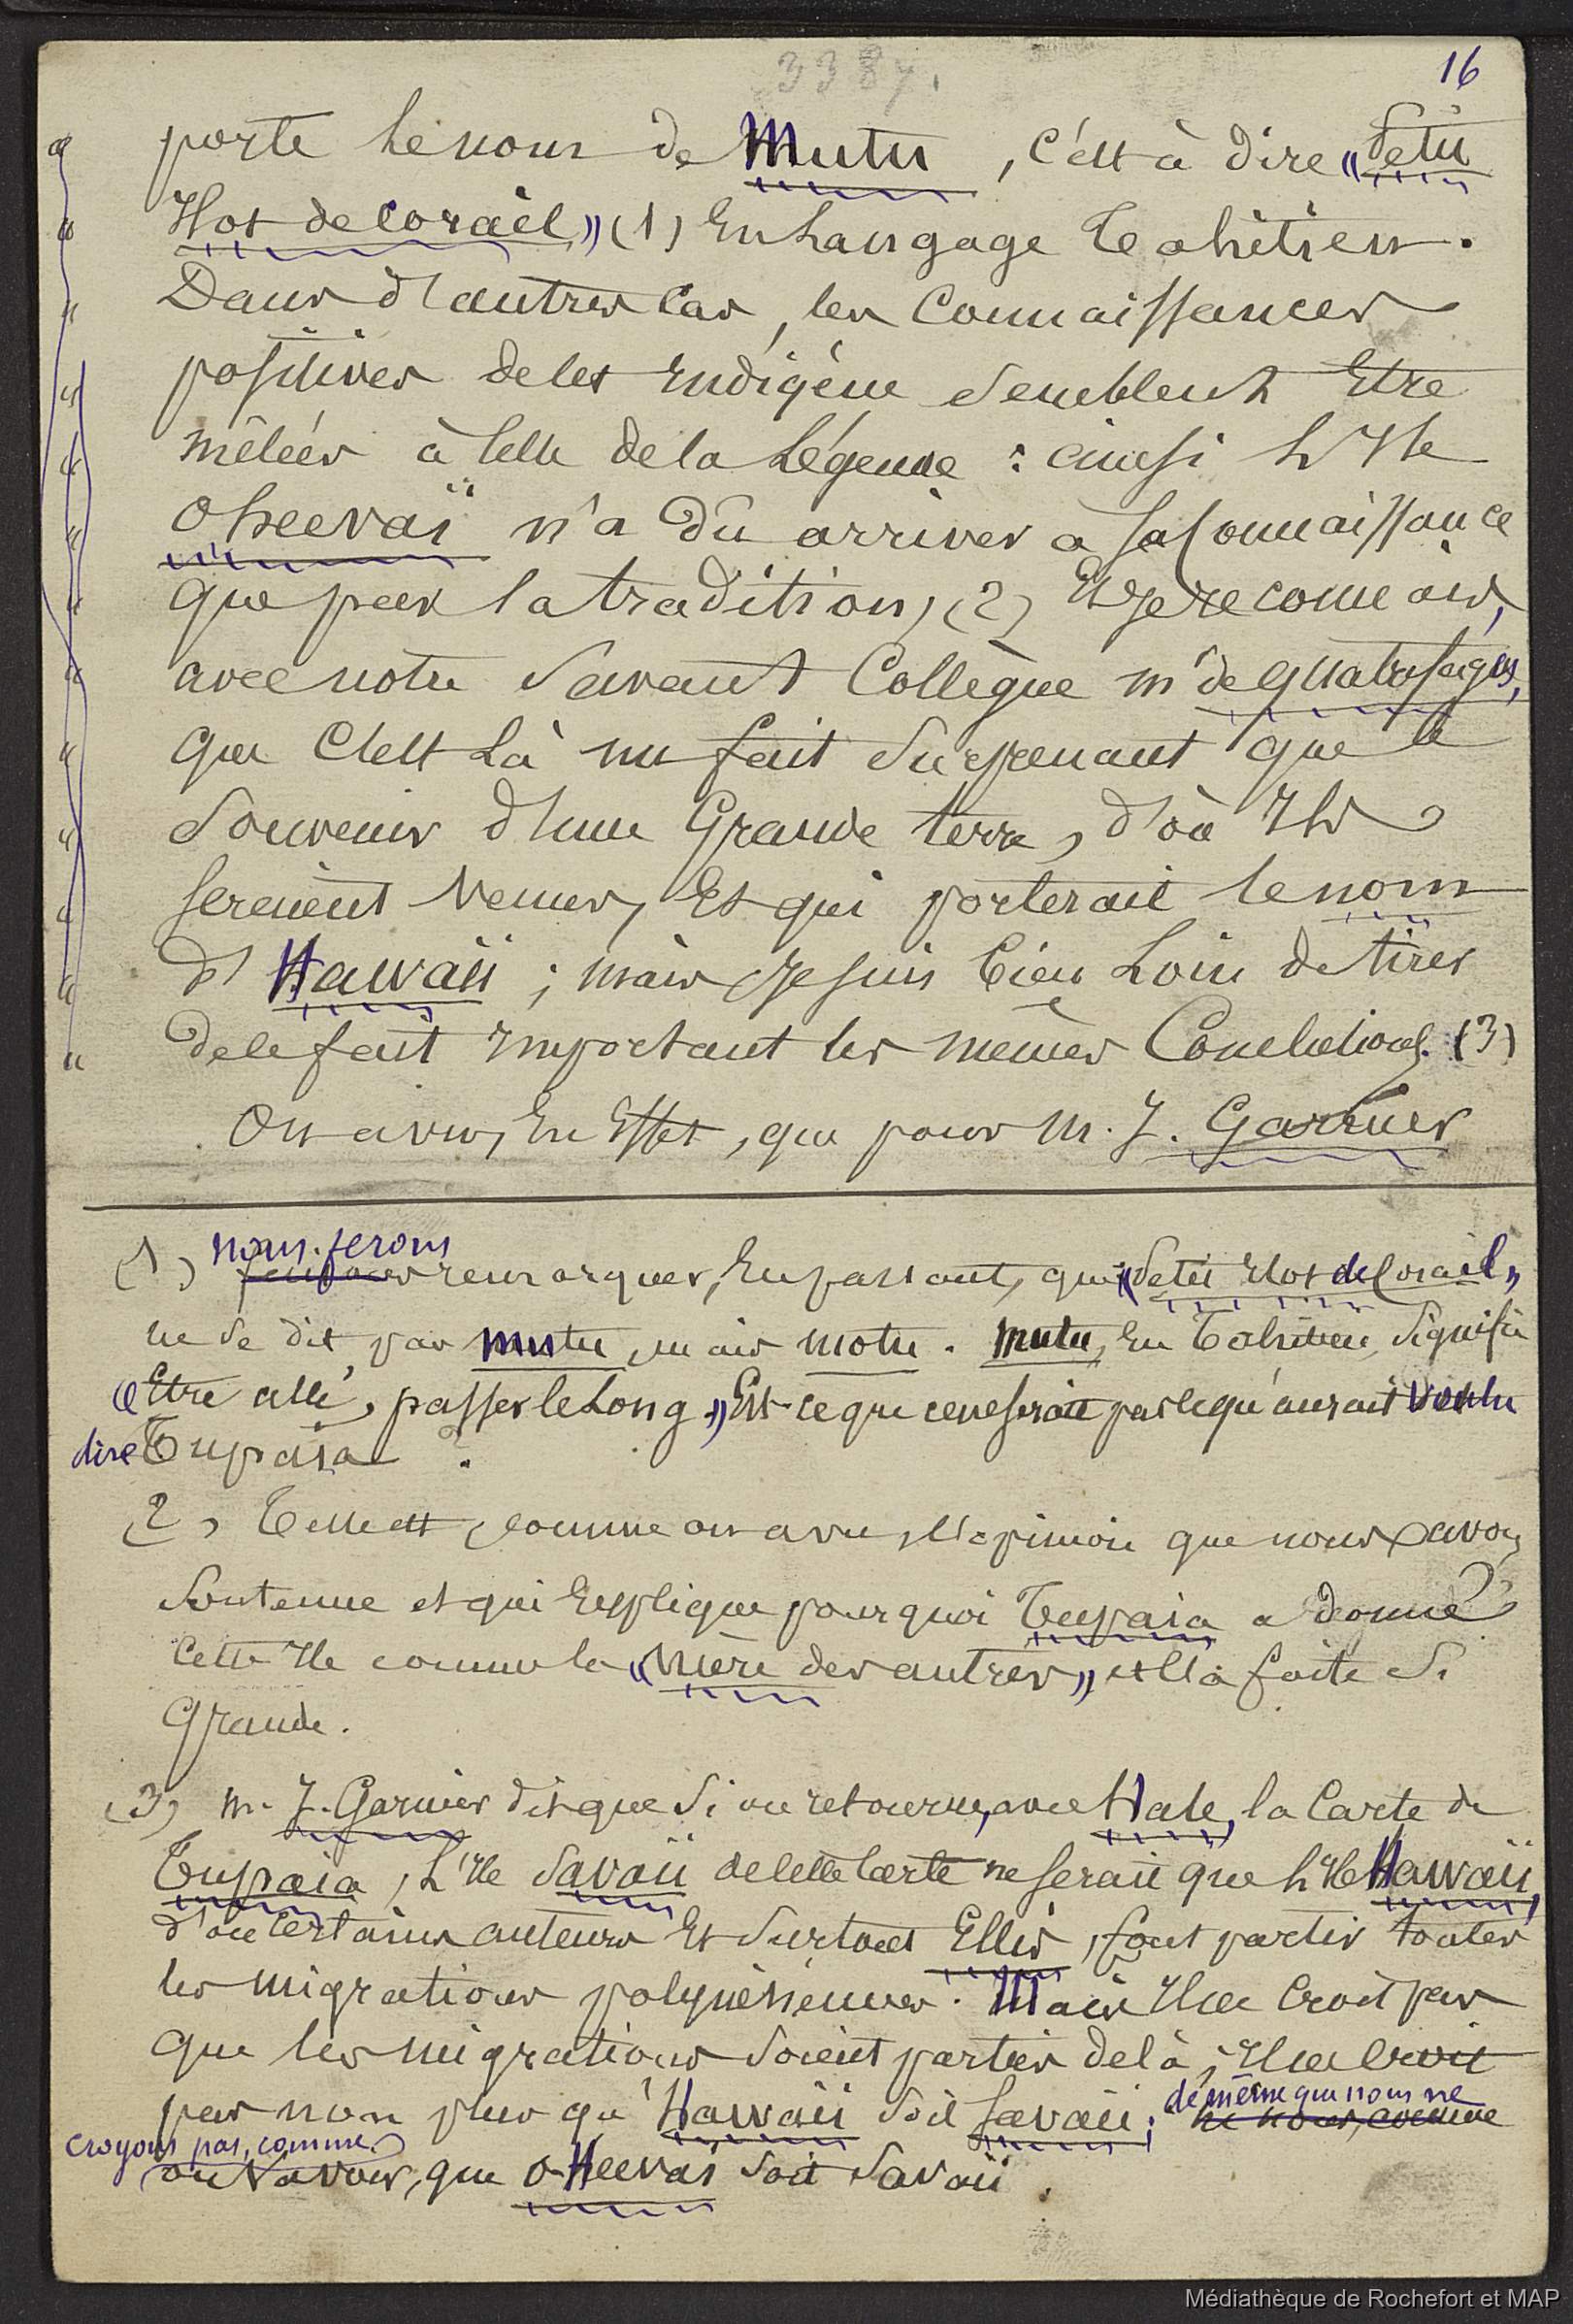 3384.
16
porte le nom de Mutu, c'est à dire "Petit
Ilot de corail" (1) En Langage Tahitien.
Dans d'autres cas, les Connaissances
positives de cet Indigène semblent Etre
mêlées à celle de la Légende : ainsi L'Ile
Oheevaï n'a dû arriver à sa Connaissance
que par la tradition, (2) Et je reconnais,
avec notre Savant Collègue Mr de Quatrefages,
que C'est Là un fait surprenant que le
Souvenir d'une Grande terre, d'où Ils
seraient Venus, Et qui porterait le nom
d'Hawaïi ; mais Je suis bien Loin de tirer
de ce fait Important les mêmes Conclusions. (3)
On a vu, En Effet, que pour M. J. Garnier
(1) nous ferons remarquer, En passant, que "Petit Ilot de Corail"
ne se dit pas mutu, mais motu. Mutu, En Tahitien, signifie
"Etre allé, passer le Long." Est-ce que ce ne serait pas ce qu'aurait voulu
dire Tupaia ?
(2) Telle est, comme on a vu, l'opinion que nous avons
Soutenue et qui Explique pourquoi Tupaia a donné
cette Ile comme la "Mère des autres" et l'a faite si
Grande.
(3) M. J. Garnier dit que si on retourne, avec Hale, la Carte de
Tupaia, L'Ile Savaïi de cette Carte ne serait que L'Ile Hawaïi,
d'où certains auteurs Et surtout Ellis, font partir toutes
les migrations polynésiennes. Mais Il ne Croit pas
que les migrations soient parties de là ; Il ne Croit
pas non plus qu'Hawaïi soit Savaïi ; de même que nous ne
croyons pas, comme
on va voir, que O-Heevaï soit Savaïi.
Médiathèque de Rochefort et MAP